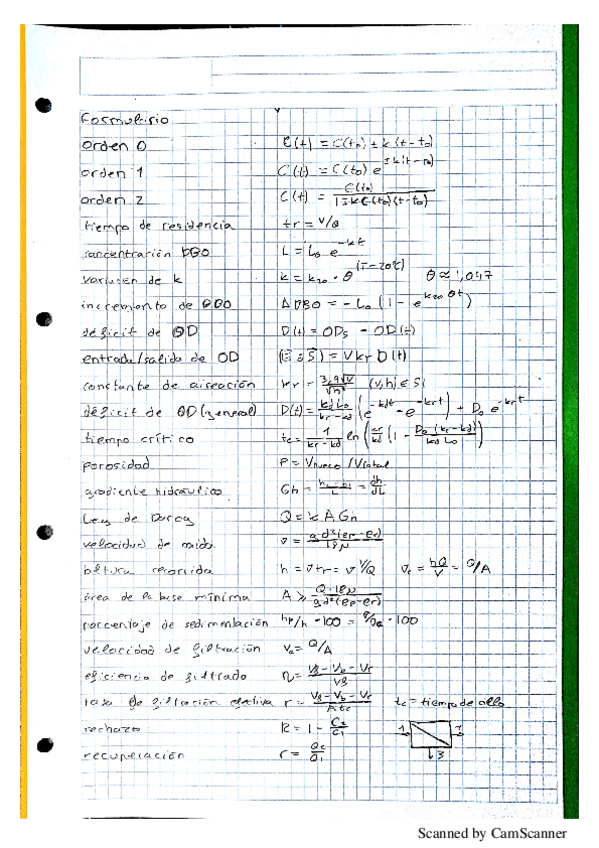 Formulario
orden 0 C(t) = C(t₀) ± k (t - t₀)
orden 1 C(t) = C(t₀) e^±k(t - t₀)
orden 2 C(t) = C(t₀) / 1 ± k C(t₀)(t - t₀)
tiempo de residencia tr = V/Q
concentración DBO L = L₀ e^-kt
variación de k k = k₂₀ · θ^(T - 20ºC) θ ≈ 1,047
incremento de DBO Δ DBO = - L₀ (1 - e^k₂₀ θt)
déficit de OD D(t) = ODs - OD(t)
entrada/salida de OD = V kr D(t)
constante de aireación kr = 3,9√v / √h³ (v,h) ∈ SI
déficit de OD (general) D(t) = kd L₀ / kr - kd (e^-kdt - e^-krt) + D₀ e^-krt
tiempo crítico tc = 1 / kr - kd ln (kr / kd (1 - D₀ (kr - kd) / kd L₀))
porosidad P = Vhueco / Vtotal
gradiente hidráulico Gh = h₂ - h₁ / L = dh / dL
Ley de Darcy Q = k A Gh
velocidad de caída v = g d²(ρp - ρf) / 18 μ
altura recorrida h = v tr = v V/Q vc = hQ / V = Q/A
área de la base mínima A ≥ Q · 18μ / g d²(ρp - ρf)
porcentaje de sedimentación hp/h · 100 = · 100
velocidad de filtración Va = Q/A
eficiencia de filtrado η = Vf - Vb - Vr / Vf
tasa de filtración efectiva r = Vf - Vb - Vr / A tc tc = tiempo de
rechazo R = 1 - C₂ / C₁ 1 2
recuperación r = Q₂ / Q₁ 3
Scanned by CamScanner